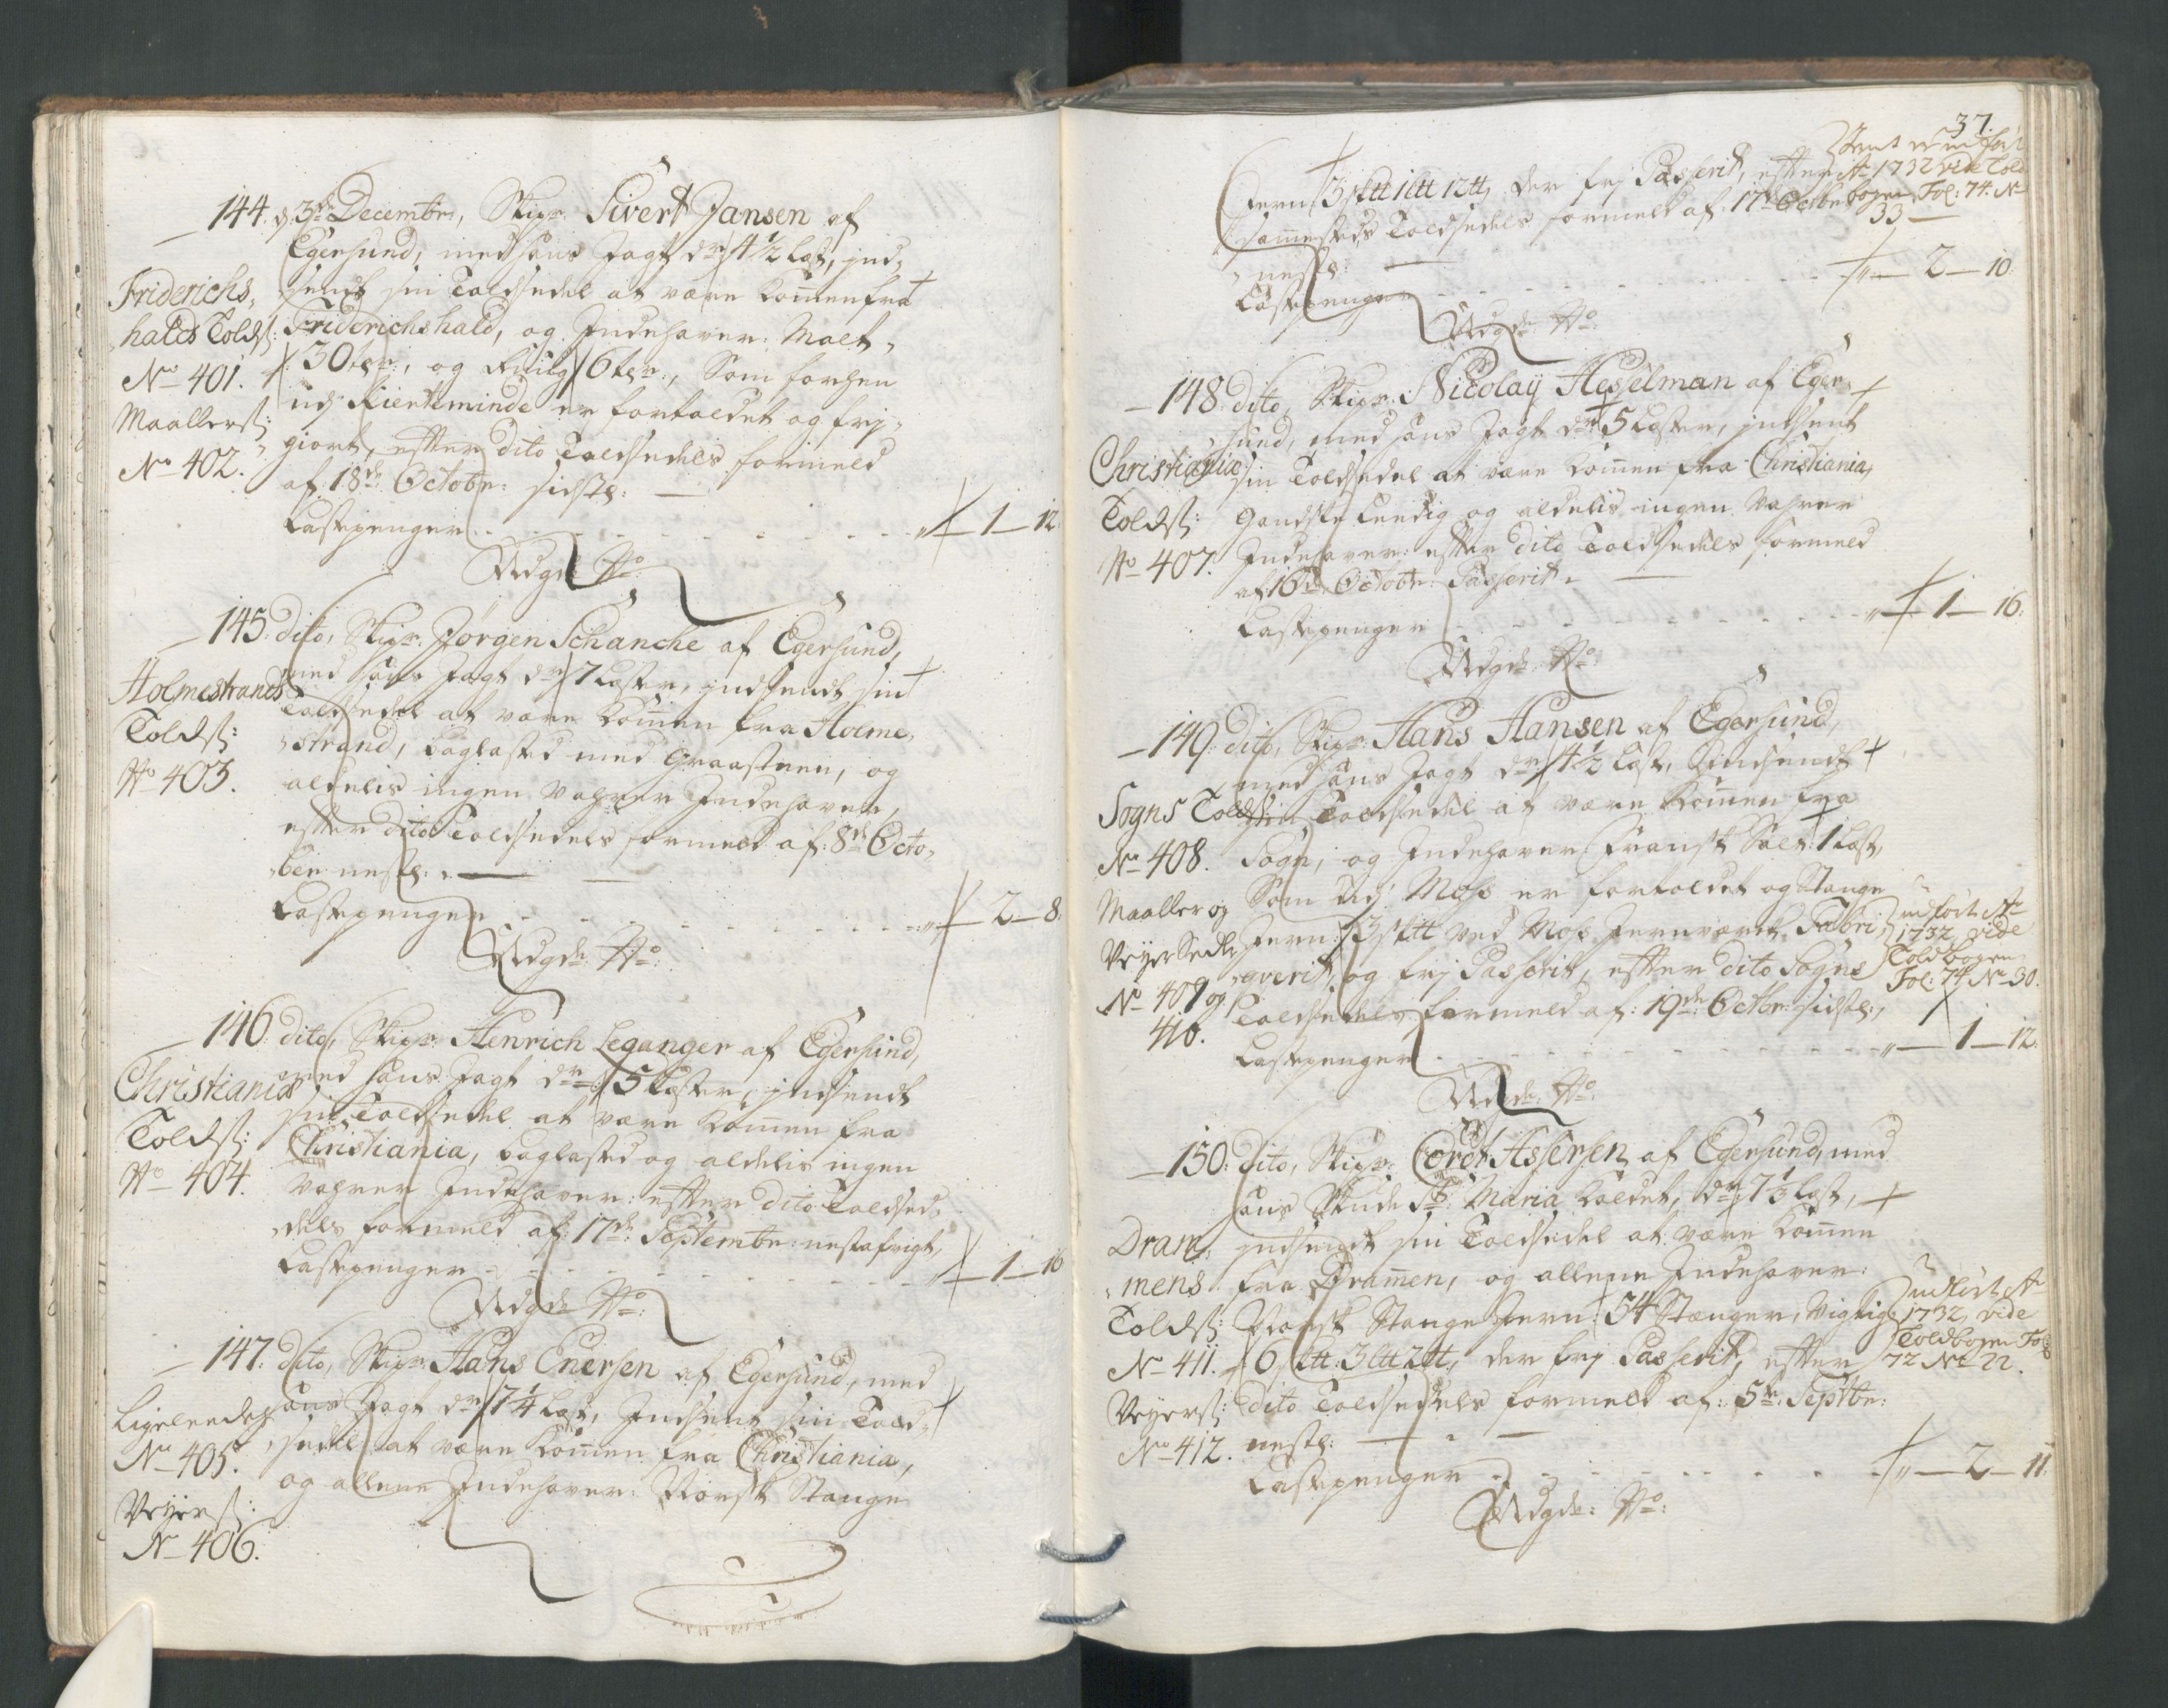 144. d. 3de Decembr:, Skipr. Sivert Jansen af
Egersund, med hans Jagt dr: 4½ Læst, ind-
sendt sin Toldsedel at være kommen fra
Friderichshald, og Indehaver: Malt
30 tr:, og Rug 6 tr:, Som forhen
udj Kierteminde er fortoldet og frj-
giort, efter dito Toldsedels formeld
af 18de Octobr: sidstl:
Lastepenger 1 - 12.
Udgde No:
Friderichs-
halds Tolds:
No 401.
Maallers:
No 402.
145. dito, Skipr. Jørgen Schanche af Egersund,
med hans Jagt dr: 7 Læster, indsendt sin
Toldsedel at være kommen fra Holme-
strand, baglasted med Graasteen, og
aldelis ingen Vahrer Indehaver,
efter dito Toldsedels formeld af: 8de Octo-
ber nestl:
Lastepenger 2 - 8.
Udgde: No:
Holmestrands
Tolds:
No 403.
146. dito, Skipr. Henrich Leganger af Egersund,
med hans Jagt dr: 5 Læster, indsendt
sin Toldsedel at være kommen fra
Christiania, baglasted og aldelis ingen
Vahrer Indehaver: efter dito Toldsed-
dels formeld af: 17de: Septembr: nestafvigt,
Lastepenger 1 - 16
Udgde No:
Christiania
Tolds:
No 404.
147. dito, Skipr. Hans Enersen af Egersund, med
hans Jagt dr: 7¼ Læst, Indsent sin Told-
sedel at være kommen fra Christiania,
og allene Indehaver: Norsk Stange
Ligeledes
No 405.
Veyers:
No 406.
37.
Jern 3 sktt 1 ltt 12 tt, der frj Passerit, efter
sammesteds Toldsedels formeld af: 17de Octobr
nestl:
Lastepenger 2 - 10
Udgde: No:
Ao 1732 vide Told
bogen Fol: 74. No
33
148. dito, Skipr: Nicolaÿ Hesselman af Eger-
sund, med hans Jagt dr: 5 Læster, indsent
sin Toldsedel at være kommen fra Christiania,
Gandske Leedig og aldelis ingen Vahrer
Indehaver: efter dito Toldsedels formeld
af 16de Octobr: Passerit.
Lastepenger 1 - 16.
Udgde: No:
Christiania
Tolds:
No 407.
149. dito, Skipr: Hans Hansen af Egersund,
med hans Jagt dr: 4½ Læst, Indsendt
sin Toldsedel at være kommen fra
Sogn, og Indehaver: Fransk Salt 1 Læst,
Som udj Moss er fortoldet og Stange
Jern: 3 sktt ved Moss Jernværck Fabri-
qverit, og frj Passerit, efter dito Sogns
Toldsedels formeld af: 19de: Octbr: sidstl:,
Lastepenger 1 - 12.
Udgde: No:
Sogns Tolds:
No 408.
Maaller og
Veyer Sedler
No 409 og
410.
indført Ao
1732 vide
Toldbogen
Fol: 74 No 30.
150. dito, Skipr: Cordt Assersen af Egersund, med
hans Skude St: Maria kaldet, dr: 7⅓ Læst,
indsendt sin Toldsedel at være kommen
fra Drammen, og allene Indehaver:
Norsk Stange Jern: 54 Stænger, Vigtige
6 sktt: 3 ltt 2 tt, der frj Passerit, efter
dito Toldsedels formeld af: 5te: Septbr:
nestl:
Lastepenger 2 - 11.
Udgde: No:
Dram-
mens
Tolds:
No 411.
Veyers:
No 412.
indført Ao
1732, vide
Toldbogen Fo:
72 No 22.